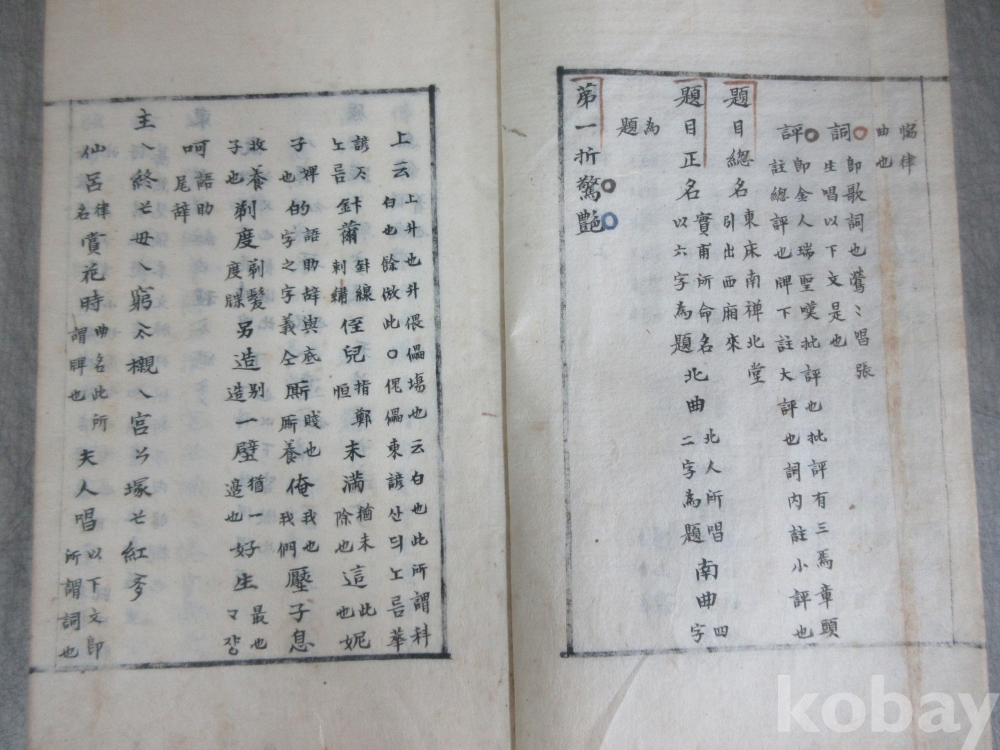 恊律曲也
詞即歌詞也鶯〻唱張生唱以下文是也
評即金人瑞聖嘆批評也批評有三焉章頭註總評也牌下註大評也詞内註小評也
題目緫名東床南禅北堂引出西廂來
題目正名實甫所命名以六字為題北曲北人所唱二字為題南曲四字
為題
苐一折驚艶
上云上升也升偎儡塲也云白也此所謂科白也餘倣此〇傀儡東諺산듸노름華
諺노름針線刺繡侄兒指鄭恒未满猶未除也這此也妮
子婢子也的語助辞與底字之字義仝厮賤也厮養俺我也我們壓子息
收養子也剃度剃髮度牒另造别造一壁猶一邉也好生最也マ장
呵語助尾辞
主丶終母丶窮櫬丶宮塚紅
仙呂律名賞花時曲名此所謂牌也夫人唱以下文即所謂詞也
kobay